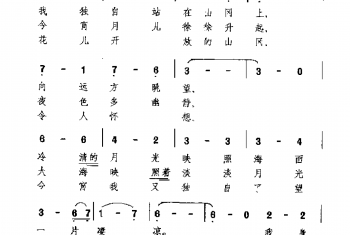 我 独自 站 在山冈 上,
今 宵月 儿 徐徐升 起,
花 儿开 放的山 冈。
7 - 1 - 7 - 6 | 3 - 3 - | 3 - 0
向 远 方 眺 望,
夜 色 多 幽 静,
令 人 怀 想。
6 - 6 4 - 2 - | 4 - 3 | 3 - 4 -
冷 清的 月 光 映 照 海 面
大 海 映 照着 淡 淡 月 光
今 宵 我 又 独 自 了 望
3 - 6 7 | 1 - 7 - | - 2 - | 2 - 0
一 片 凄 凉。